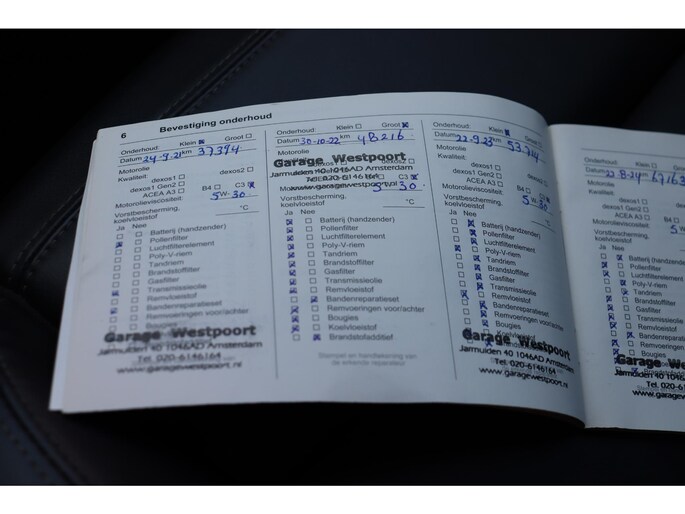 6 Bevestiging onderhoud
Onderhoud: Klein Groot
Datum 24-9-21 km 37394
Motorolie
Kwaliteit: dexos1 dexos2
dexos1 Gen2
ACEA A3 B4 C3
Motorolieviscositeit: 5W-30
Vorstbescherming, koelvloeistof °C
Ja Nee
Batterij (handzender)
Pollenfilter
Luchtfilterelement
Poly-V-riem
Tandriem
Brandstoffilter
Gasfilter
Transmissieolie
Remvloeistof
Bandenreparatieset
Garage Westpoort
Jarmuiden 40 1046AD Amsterdam
Tel. 020-6146164
www.garagewestpoort.nl
Onderhoud: Klein Groot
Datum 30-10-22 km 48216
Garage Westpoort
Jarmuiden 40 1046AD Amsterdam
Tel. 020-6146164
www.garagewestpoort.nl
C3
30
Vorstbescherming, koelvloeistof °C
Ja Nee
Batterij (handzender)
Pollenfilter
Luchtfilterelement
Poly-V-riem
Tandriem
Brandstoffilter
Gasfilter
Transmissieolie
Remvloeistof
Bandenreparatieset
Remvoeringen voor/achter
Bougies
Koelvloeistof
Brandstofadditief
Stempel en handtekening van
de erkende reparateur
Onderhoud: Klein Groot
Datum 22-9-23 km
Motorolie
Kwaliteit: dexos1
dexos1 Gen2
ACEA A3 B4
Motorolieviscositeit: 5W-30
Vorstbescherming, koelvloeistof °C
Ja Nee
Batterij (handzender)
Pollenfilter
Luchtfilterelement
Poly-V-riem
Tandriem
Brandstoffilter
Gasfilter
Transmissieolie
Remvloeistof
Bandenreparatieset
Remvoeringen voor/achter
Bougies
Garage Westpoort
Jarmuiden 40 1046AD Amsterdam
Tel. 020-6146164
www.garagewestpoort.nl
Onderhoud:
Datum
Motorolie
Kwaliteit:
Motorolieviscositeit:
Vorstbescherming, koelvloeistof
Ja Nee
Batterij (handzender)
Pollenfilter
Luchtfilterelement
Poly-V-riem
Tandriem
Brandstoffilter
Gasfilter
Transmissieolie
Remvloeistof
Bandenreparatieset
Remvoeringen
Bougies
Garage Westpoort
Jarmuiden 40 1046
Tel. 020-6146164
www.garagewestpoort